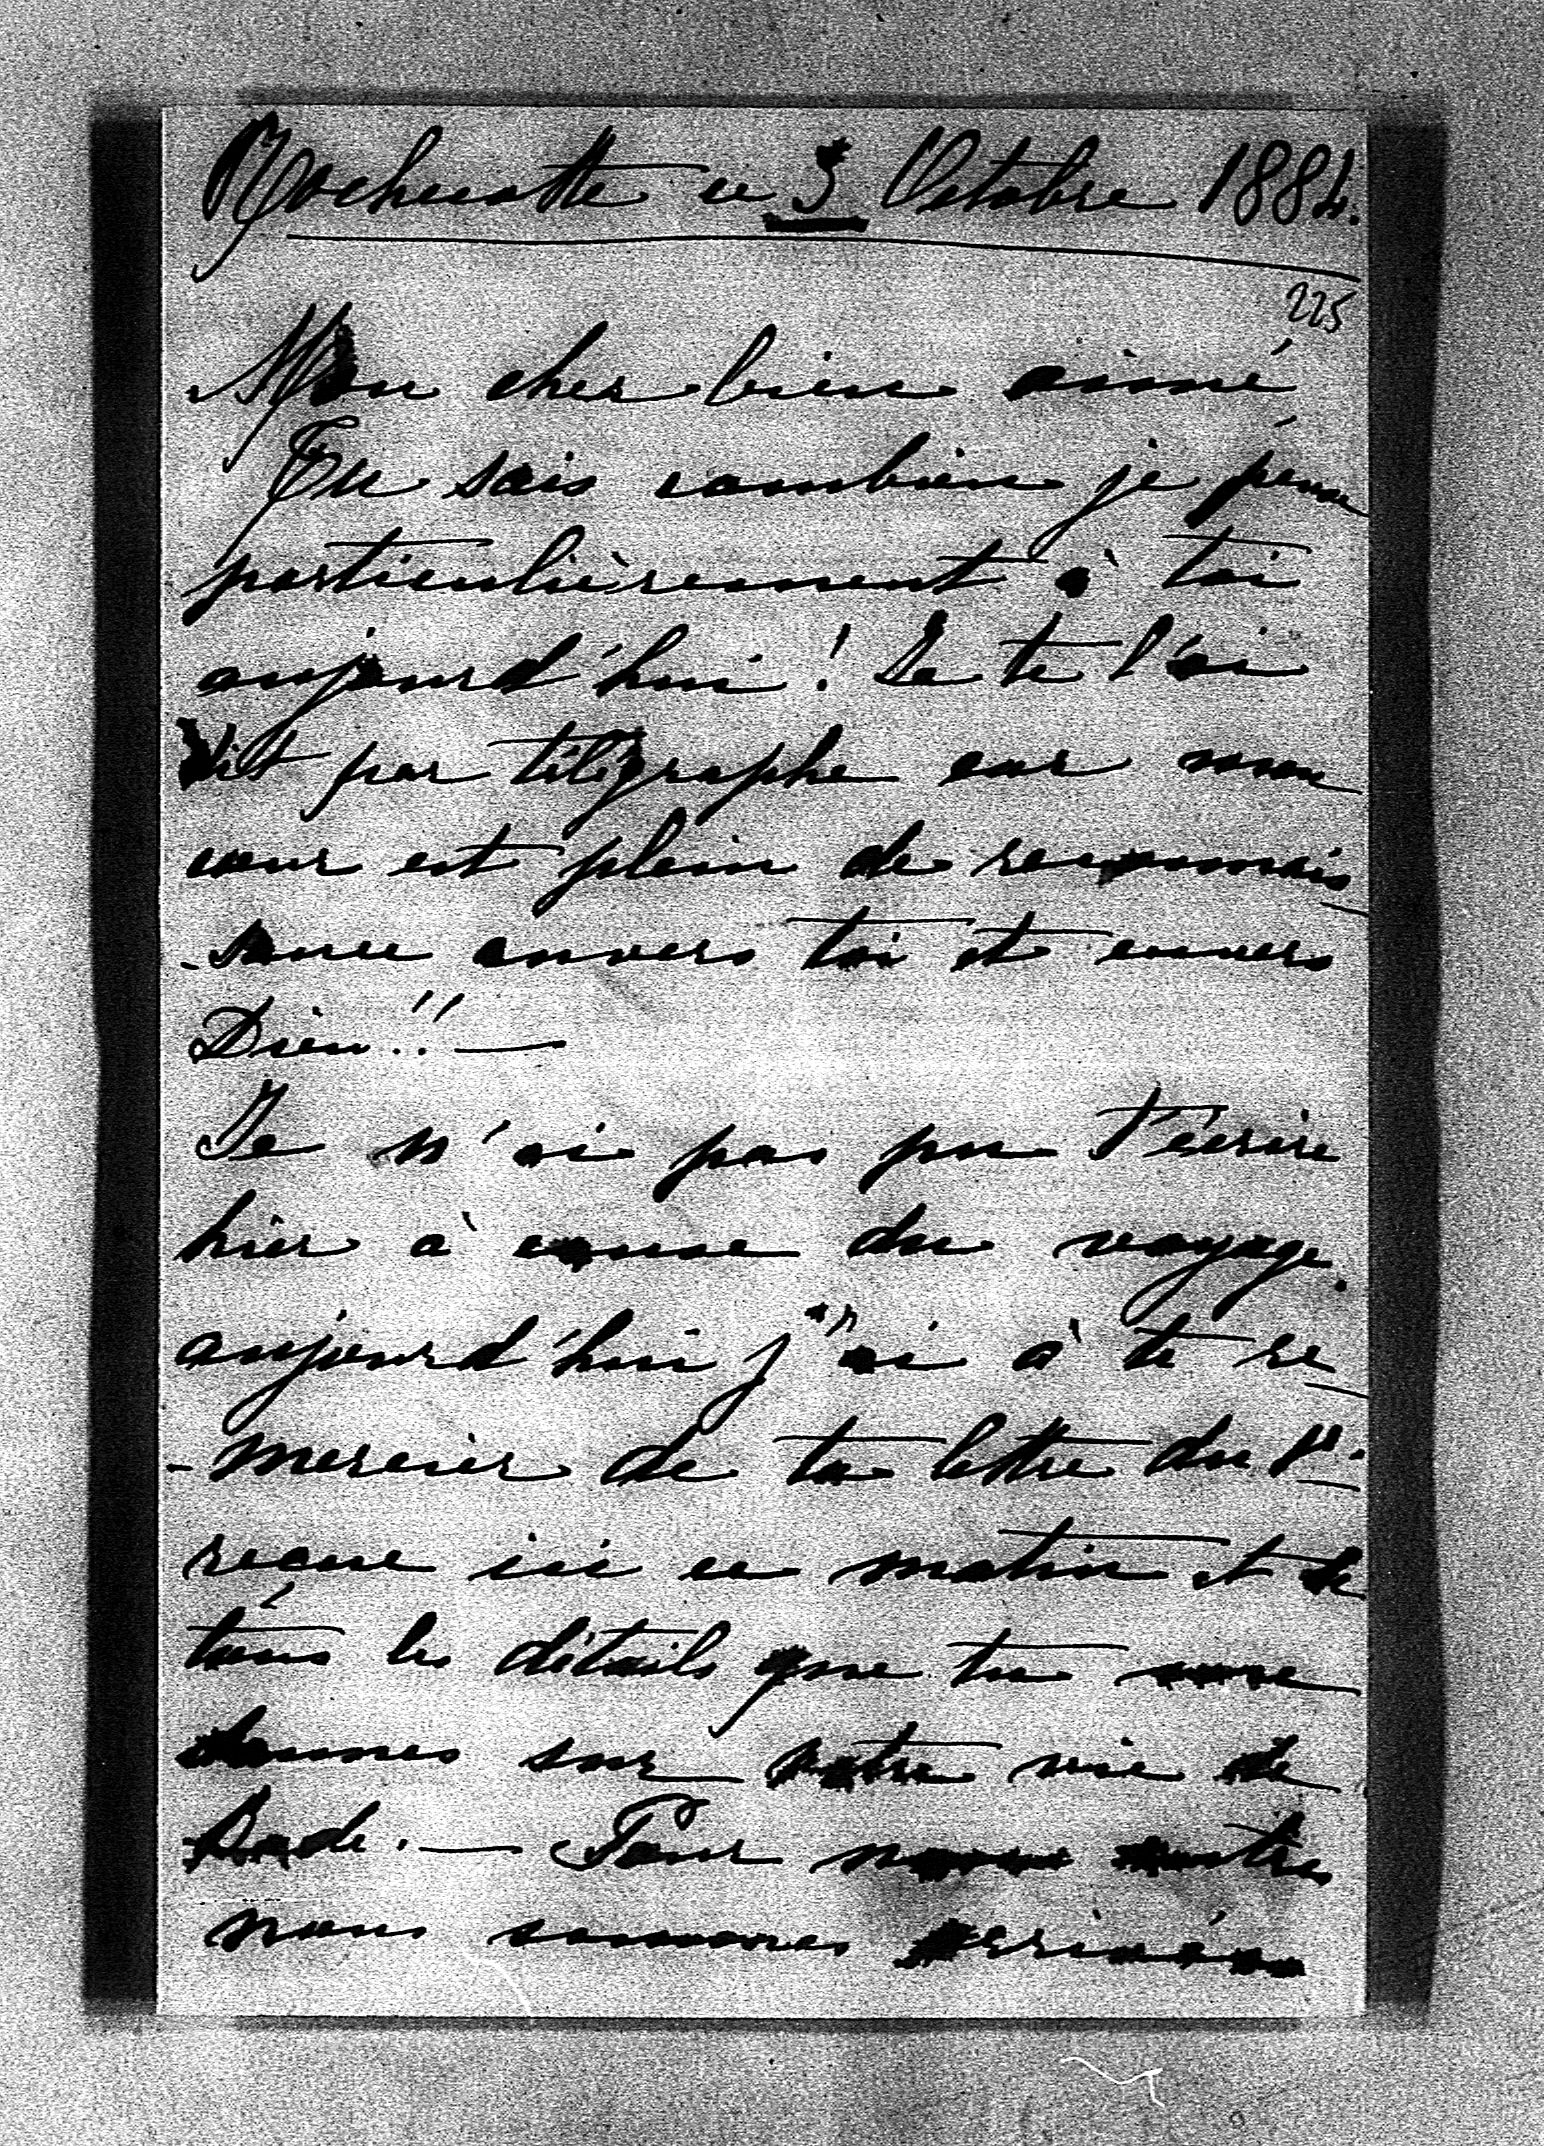 Rochecotte ce 3 Octobre 1884.
225
Mon cher bien aimé
Tu sais combien je pense
particulièrement à toi
aujourd'hui! Je te l'ai
dit par télégraphe car mon
cœur est plein de reconnais
-sance envers toi et envers
Dieu!! —
Je n'ai pas pu t'écrire
hier à cause du voyage.
aujourd'hui j'ai à te re
-mercier de ta lettre du 1er.
recue ici ce matin et de
tous les détails que tu me
donnes sur votre vie de
Bade. — Pour nous autres
nous sommes arrivés